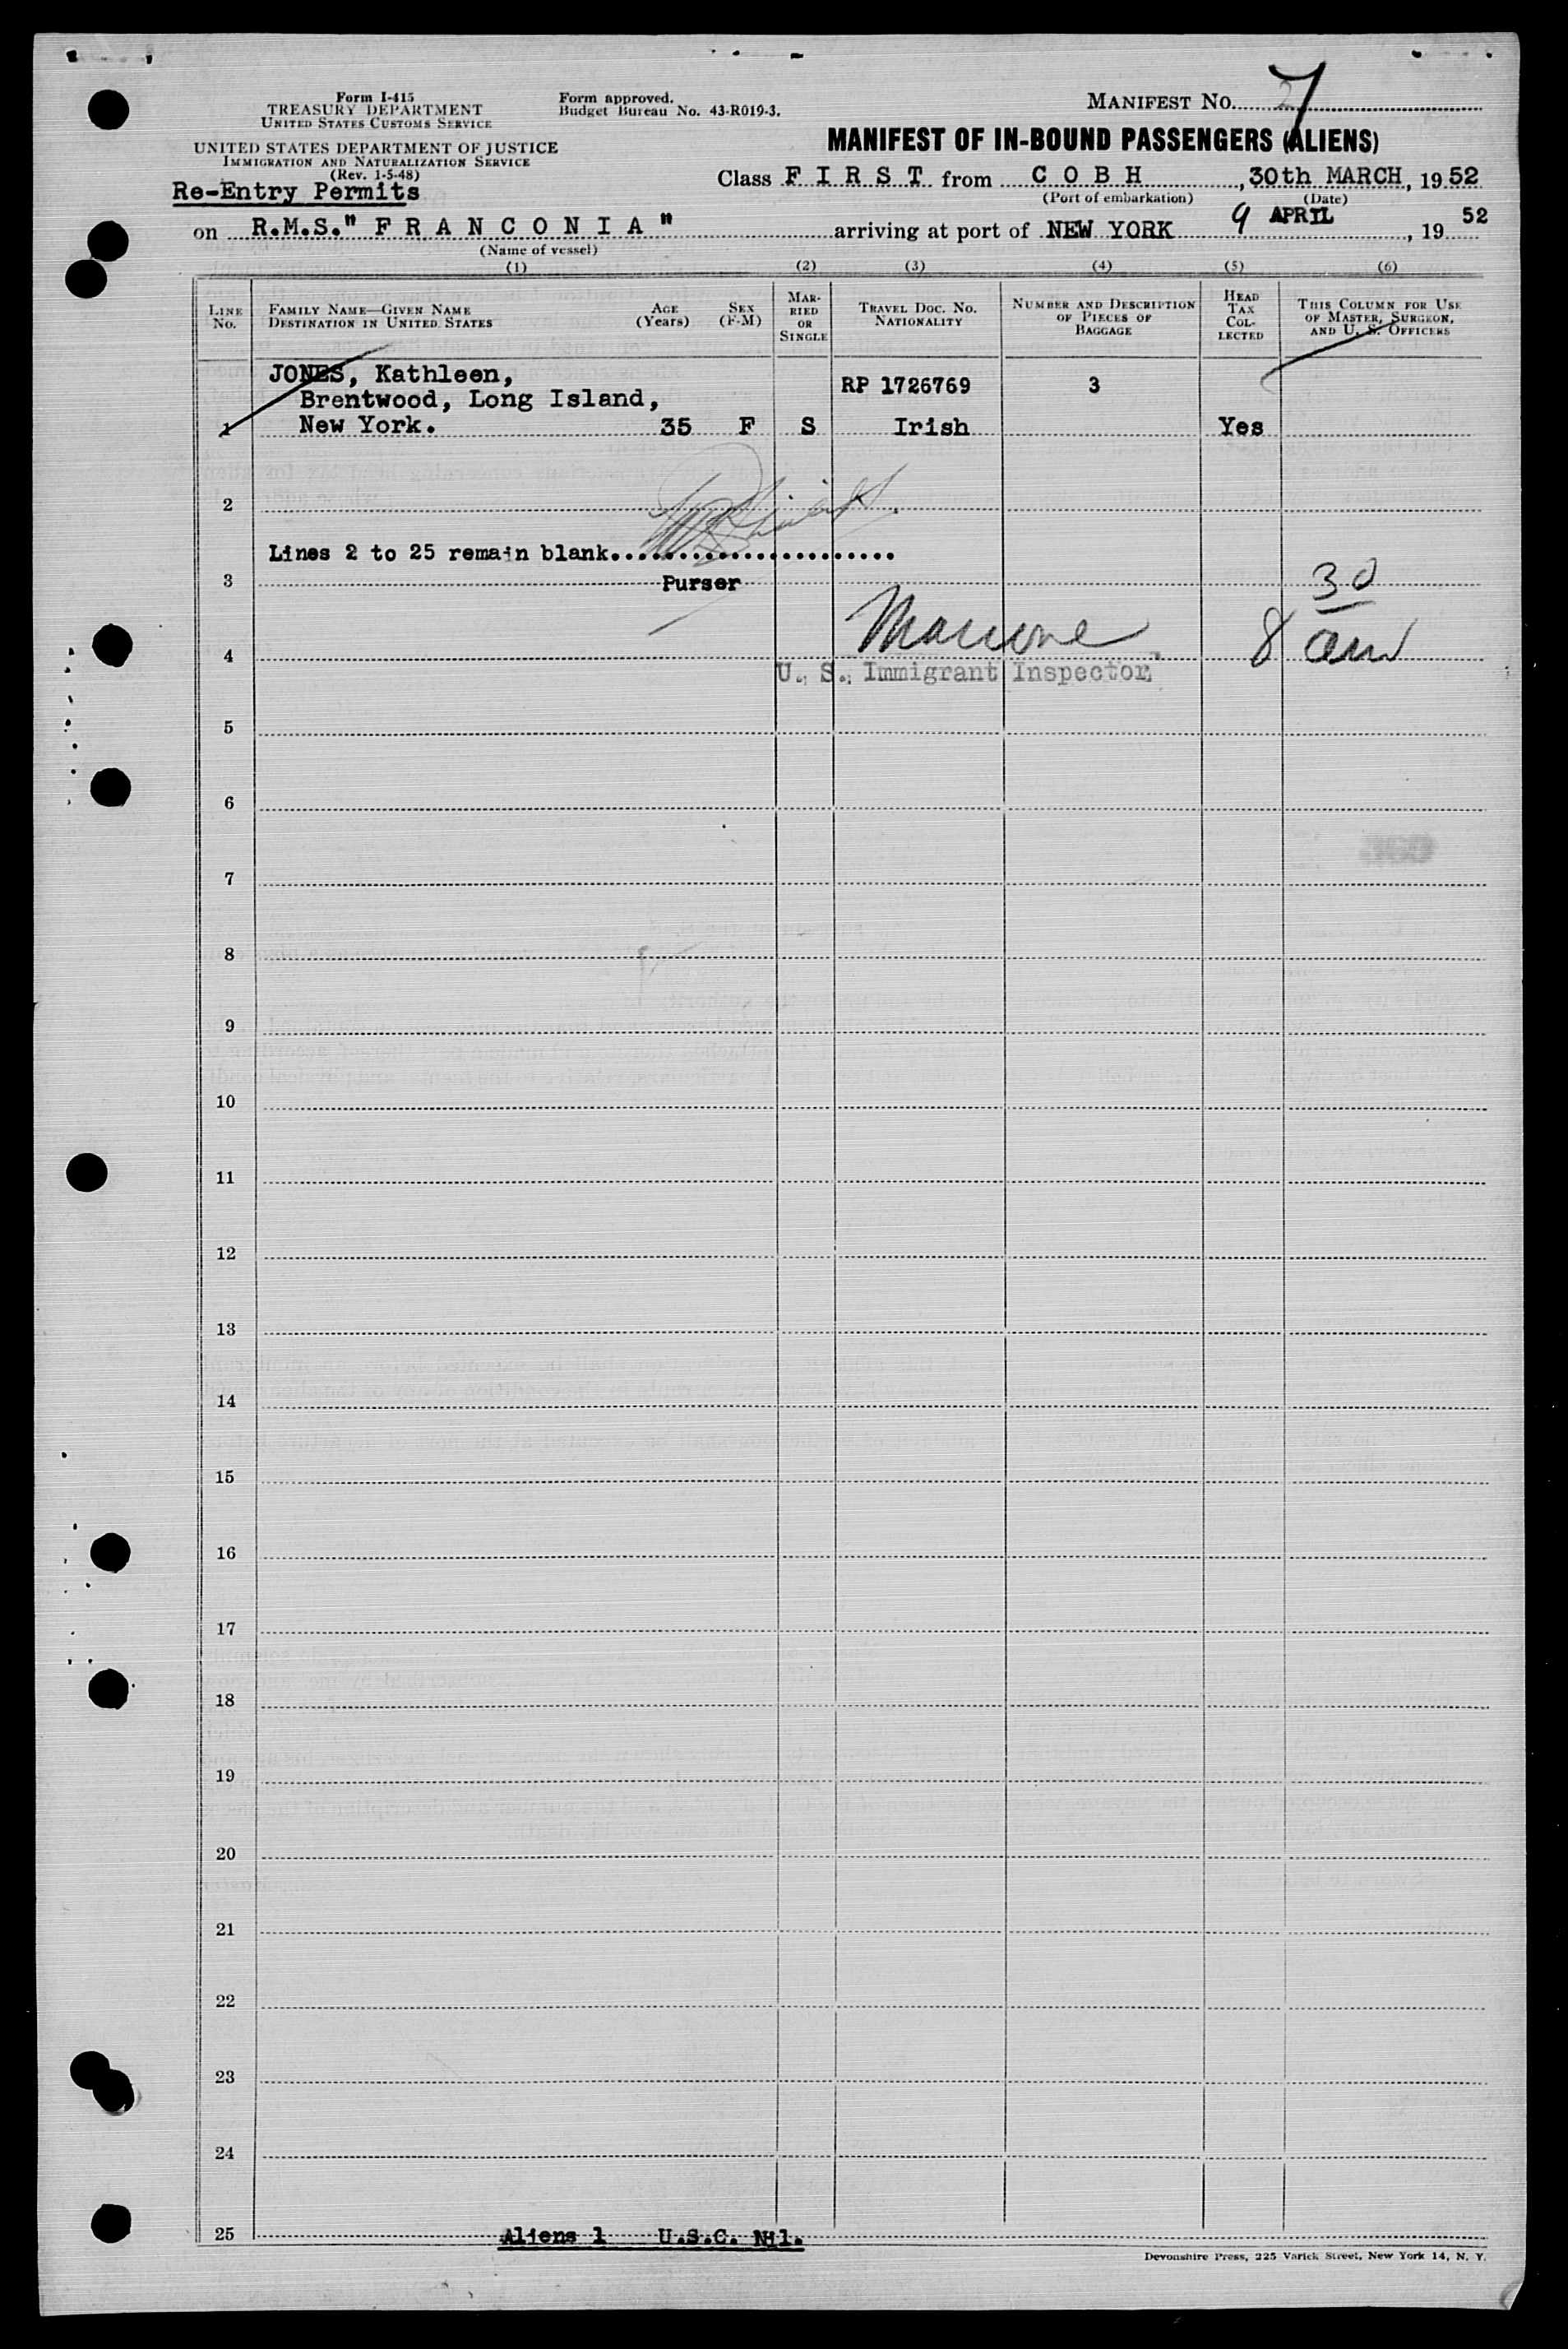 Form I-415
TREASURY DEPARTMENT
UNITED STATES CUSTOMS SERVICE
UNITED STATES DEPARTMENT OF JUSTICE
IMMIGRATION AND NATURALIZATION SERVICE
(Rev. 1-5-48)
Re-Entry Permits
Form approved.
Budget Bureau No. 43-R019-3.
MANIFEST NO. 7
MANIFEST OF IN-BOUND PASSENGERS (ALIENS)
Class F I R S T from C O B H, 30th MARCH, 19 52
(Port of embarkation) (Date)
on R.M.S." F R A N C O N I A " arriving at port of NEW YORK 9 APRIL, 19 52
(Name of vessel)
(1) (2) (3) (4) (5) (6)
LINE NO.
FAMILY NAME—GIVEN NAME
DESTINATION IN UNITED STATES
AGE (Years)
SEX (F-M)
MARRIED OR SINGLE
TRAVEL DOC. NO.
NATIONALITY
NUMBER AND DESCRIPTION OF PIECES OF BAGGAGE
HEAD TAX COLLECTED
THIS COLUMN FOR USE OF MASTER, SURGEON, AND U. S. OFFICERS
JONES, Kathleen, RP 1726769 3
Brentwood, Long Island,
1 New York. 35 F S Irish Yes
2
Lines 2 to 25 remain blank.......................
3 Purser 30
4 8 am
U. S. Immigrant Inspector
5
6
7
8
9
10
11
12
13
14
15
16
17
18
19
20
21
22
23
24
25 Aliens 1 U.S.C. Nil.
Devonshire Press, 225 Varick Street, New York 14, N. Y.